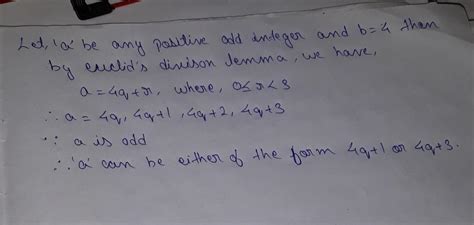 Let, 'a' be any positive odd integer and b=4 then
by euclid's divison lemma, we have,
a = 4q+r, where, 0≤r<3
∴ a = 4q, 4q+1, 4q+2, 4q+3
∵ a is odd
∴ 'a' can be either of the form 4q+1 or 4q+3.